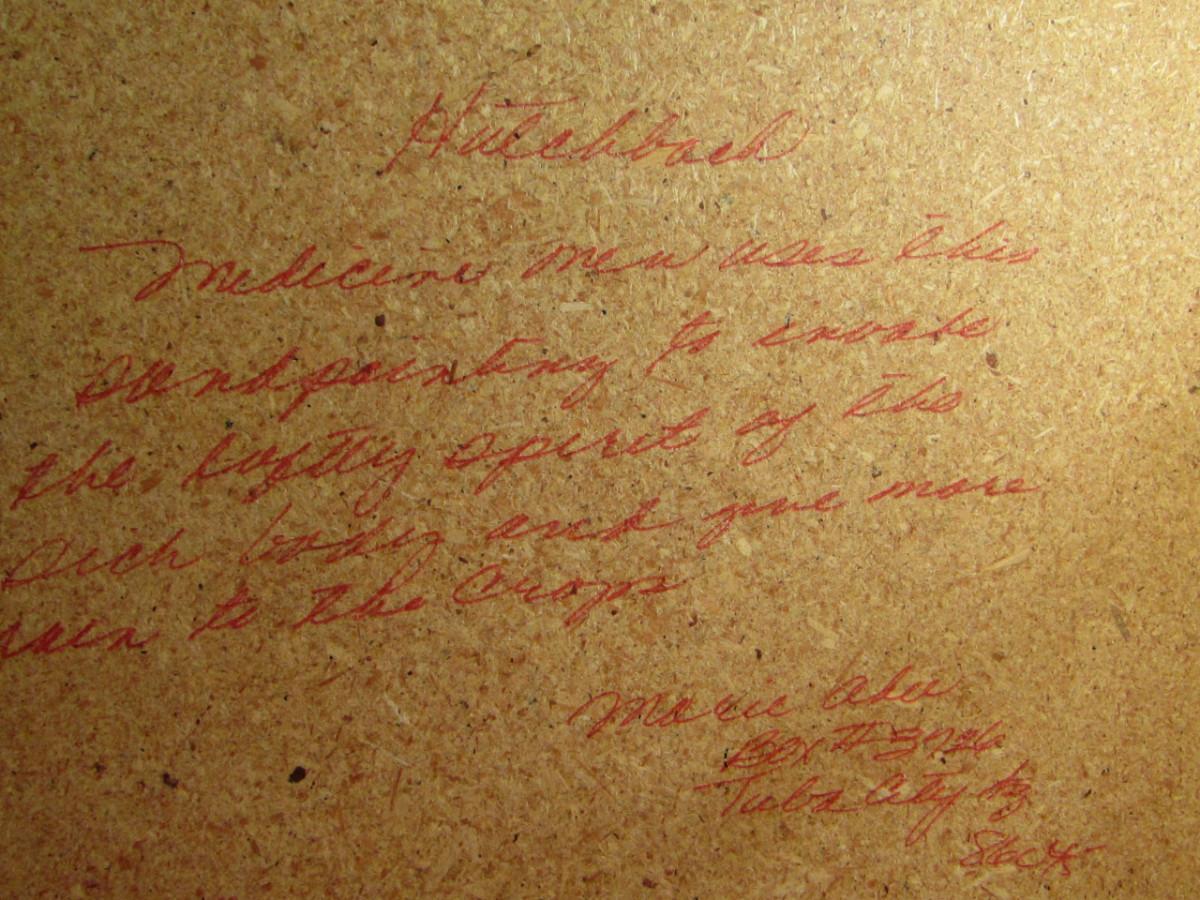 Hutchback
Medicine men uses this
sandpainting to invoke
the spirit of the
sick body and give more
rain to the crops
Marie
Box #
Tuba City Az
86045